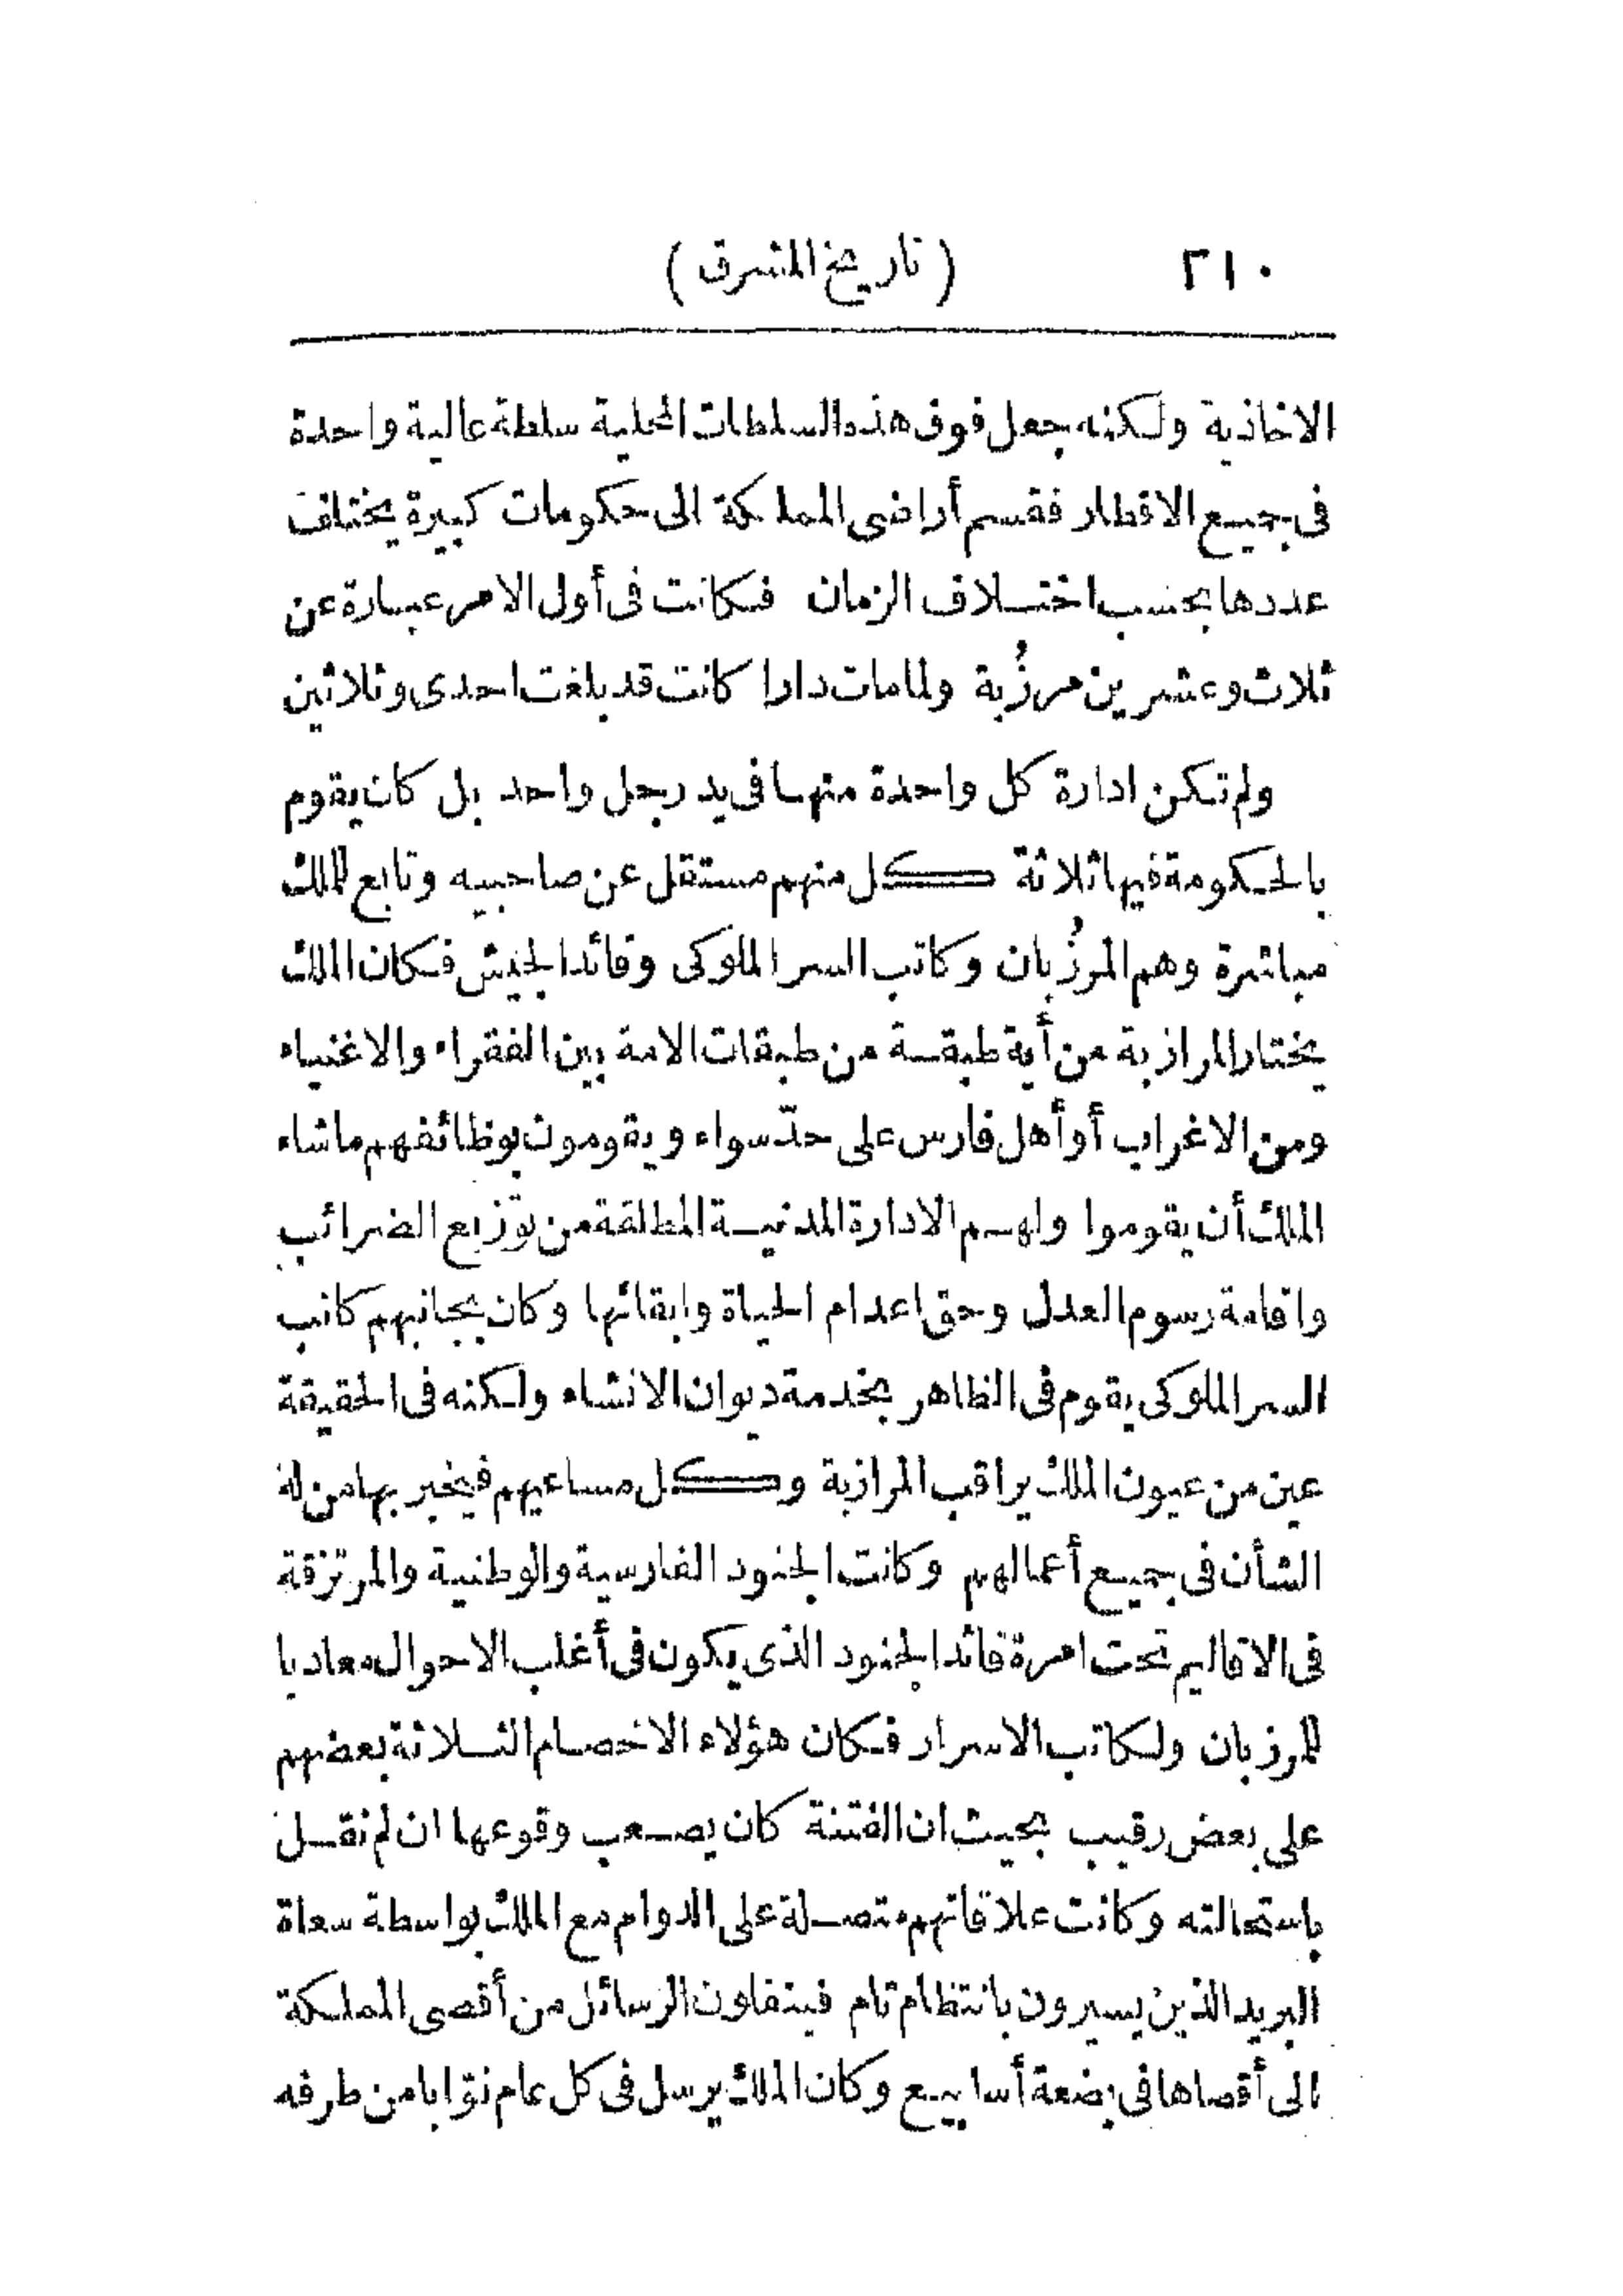 ٢١٠ (تاريخ المشرق)
الاخاذية ولكنه جعل فوق هذه السلطات المحلية سلطة عالية واحدة
فى جميع الاقطار فقسم أراضى المملكة الى حكومات كبيرة يختلف
عددها بحسب اختلاف الزمان فكانت فى أول الامر عبارة عن
ثلاث وعشرين مرزُبة ولما مات دارا كانت قد بلغت احدى وثلاثين
ولم تكن ادارة كل واحدة منها فى يد رجل واحد بل كان يقوم
بالحكومة فيها ثلاثة كل منهم مستقل عن صاحبيه وتابع للملك
مباشرة وهم المرزُبان وكاتب السر الملوكى وقائد الجيش فكان الملك
يختار المرازبة من أية طبقة من طبقات الامة بين الفقراء والاغنياء
ومن الاغراب أو أهل فارس على حدّ سواء ويقومون بوظائفهم ماشاء
الملك أن يقوموا ولهم الادارة المدنية المطلقة من توزيع الضرائب
واقامة رسوم العدل وحق اعدام الحياة وابقائها وكان بجانبهم كاتب
السر الملوكى يقوم فى الظاهر بخدمة ديوان الانشاء ولكنه فى الحقيقة
عين من عيون الملك يراقب المرازبة وكل مساعيهم فيخبر بها من له
الشأن فى جميع أعمالهم وكانت الجنود الفارسية والوطنية والمرتزقة
فى الاقاليم تحت امرة قائد الجنود الذى يكون فى أغلب الاحوال معاديا
للمرزبان ولكاتب الاسرار فكان هؤلاء الاخصام الثلاثة بعضهم
على بعض رقيب بحيث ان الفتنة كان يصعب وقوعها ان لم نقل
باستحالته وكانت علاقاتهم متصلة على الدوام مع الملك بواسطة سعاة
البريد الذين يسيرون بانتظام تام فينقلون الرسائل من أقصى المملكة
الى أقصاها فى بضعة أسابيع وكان الملك يرسل فى كل عام نوّابا من طرفه